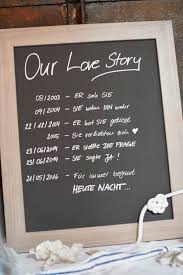 Our Love Story
08/2003 - ER sah SIE
09/2004 - SIE nahm IHN wahr
22/11/2004 - ER hat SIE geküsst
2005 - Sie verliebten sich ♥
23/06/2014 - ER stellte DIE FRAGE
23/06/2014 - SIE sagte JA!
21/05/2016 - Für immer beginnt
HEUTE NACHT...